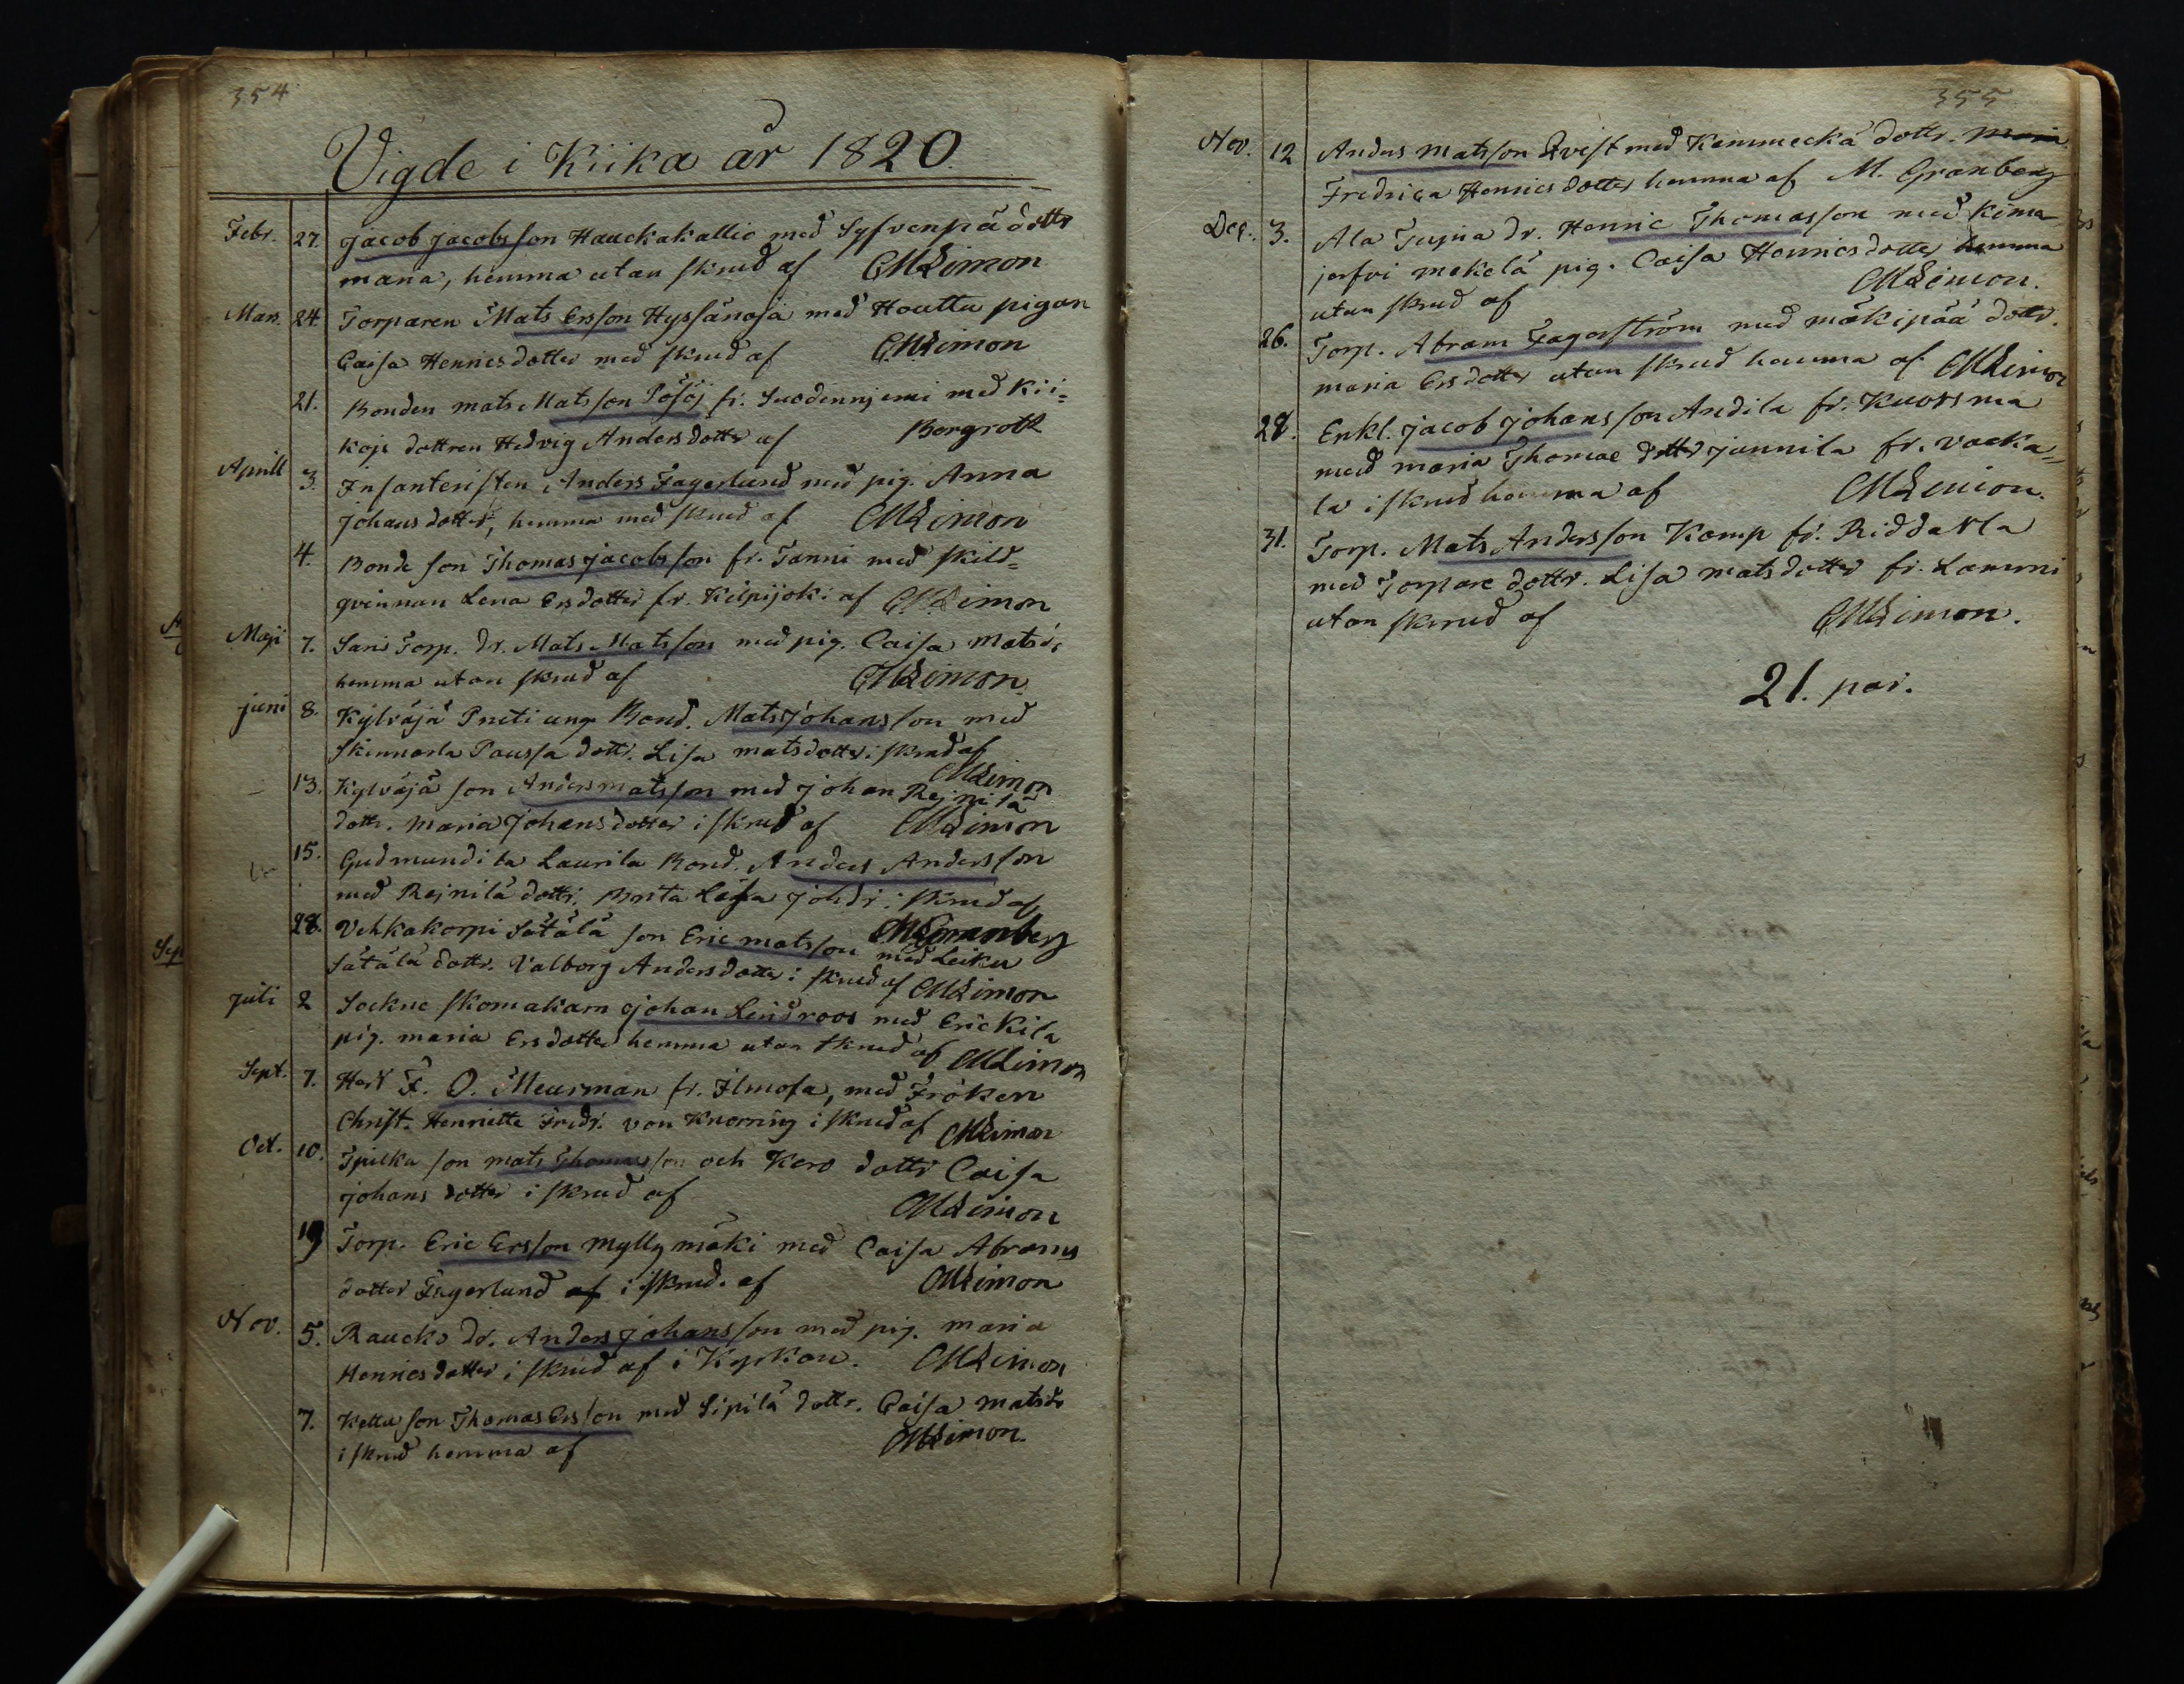 354
Vigde i Kiika år 1820.
Febr. 27. Jacob Jacobsson Hauckakallio med Syfvenpä dottr
maria, hemma utan skrud af CMLimon
Mars. 24. Torparen Mats Ersson Hyssänoja med Houttu pigan
Caisa Henricsdotter med skrud af CMLimon
21. Bonden mats Matsson Pösöj fr. Suodenniemi med Kii=
koje dottren Hedvig Andersdotter af Borgroth
Aprill 3. Infanteristen Anders Fagerlund med pig. Anna
Johansdotter, hemma med skrud af CMLimon
4. Bonde son Thomas Jacobsson fr. Tanni med skild=
qvinnan Lena Ersdotter fr. Kilpijoki af CMLimon
Maji 7. Sari Torp. dr. Mats Matsson med pig. Caisa matsdr
hemma utan skrud af CMLimon
juni 8. Kylväjä Pneti ung Bond. Mats Johansson med
skinnarla Paussa dottr. Lisa matsdotter i skrud af
CMLimon
13. Kylväjä son Anders matsson med Johan Rejnilä
dottr. maria Johansdotter i skrud af CMLimon
15. Gudmundila Laurila Bond. Anders Andersson
med Rejnilä dottr. Brita Lisa Johdr i skrud af
M Granberg
28. Vehkakorpi Sätälä son Eric matsson med Leiku
Sätälä dottr. Valborg Andersdotter i skrud af CMLimon
Juli 2 Sockne skomakarn Johan Lindroos med Erickila
pig. maria Ersdotter hemma utan skrud af CMLimon
Sept. 7. Herr F. O. Meurman fr. Ilmola, med Fröken
Christ. Henriette Fredr. von Knorring i skrud af CMLimon
Oct. 10. Tpilka son mats Thomasson och Kero dottr Caisa
Johans dotter i skrud af CMLimon
19 Torp. Eric Ersson Myllymäki med Caisa Abrams
dotter Fagerlund af i skrud. af CMLimon
Nov. 5. Raucko dr. Anders Johansson med pig. maria
Henricsdotter i skrud af i Kyrkan. CMLimon
7. Kettu son Thomas Ersson med Sipilä dottr. Caisa matsdr
i skrud hemma af CMLimon.
355
Nov. 12 Anders Matsson Qvist med Kemmeckä dottr. maria
Fredrica Henricsdotter hemma af M. Granberg
Dec. 3. Ala Tupia dr. Henric Thomasson med Kima
jerfvi mekelä pig. Caisa Henricsdotter hemma
utan skrud af CMLimon.
26. Torp. Abram Fagerström med mäkipää dottr.
maria Ersdotter utan skrud hemma af CMLimon
28. Enkl. Jacob Johansson Andila fr. Kuorsma
med maria Thomae dotter Junnila fr. Vacka=
la i skrud hemma af CMLimon.
31. Torp. Mats Andersson Kamp fr. Riddarla
med Torpare dottr. Lisa matsdotter fr. Lammi
utan skrud af CMLimon.
21. par.